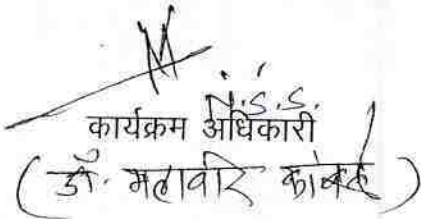 N.S.S.
कार्यक्रम अधिकारी
(डॉ. महावीर कांबळे)